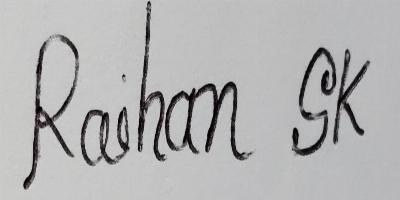 Raihan SK